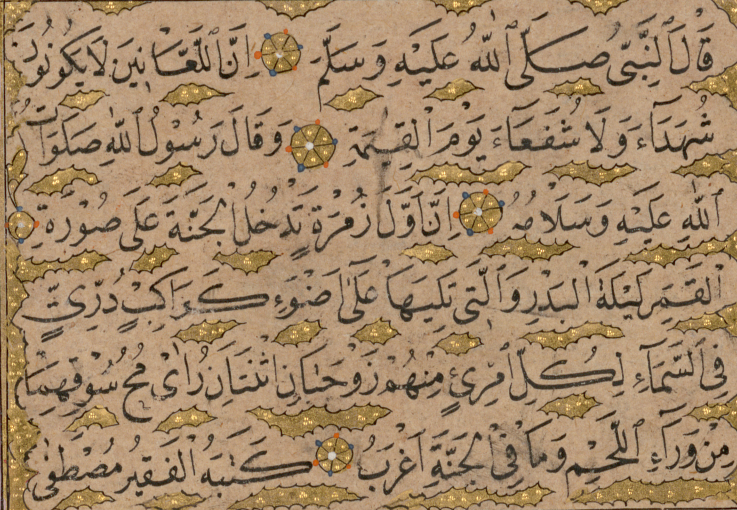 قَالَ النَّبِيُّ صَلَّى اللهُ عَلَيْهِ وَسَلَّمَ اِنَّ اللَّعَّانِينَ لَا يَكُونُونَ
شُهَدَآءَ وَلَا شُفَعَآءَ يَوْمَ الْقِيٰمَةِ وَقَالَ رَسُولُ اللهِ صَلَوَاتُ
اللهِ عَلَيْهِ وَسَلَامُهُ اِنَّ اَوَّلَ زُمْرَةٍ تَدْخُلُ الْجَنَّةَ عَلَى صُورَةِ
الْقَمَرِ لَيْلَةَ الْبَدْرِ وَالَّتِي تَلِيهَا عَلَى اَضْوَءِ كَوْكَبٍ دُرِّيٍّ
فِي السَّمَآءِ لِكُلِّ امْرِئٍ مِنْهُمْ زَوْجَتَانِ اثْنَتَانِ يُرٰى مُخُّ سُوقِهِمَا
مِنْ وَرَآءِ اللَّحْمِ وَمَا فِي الْجَنَّةِ اَعْزَبُ كَتَبَهُ الْفَقِيرُ مُصْطَفٰى